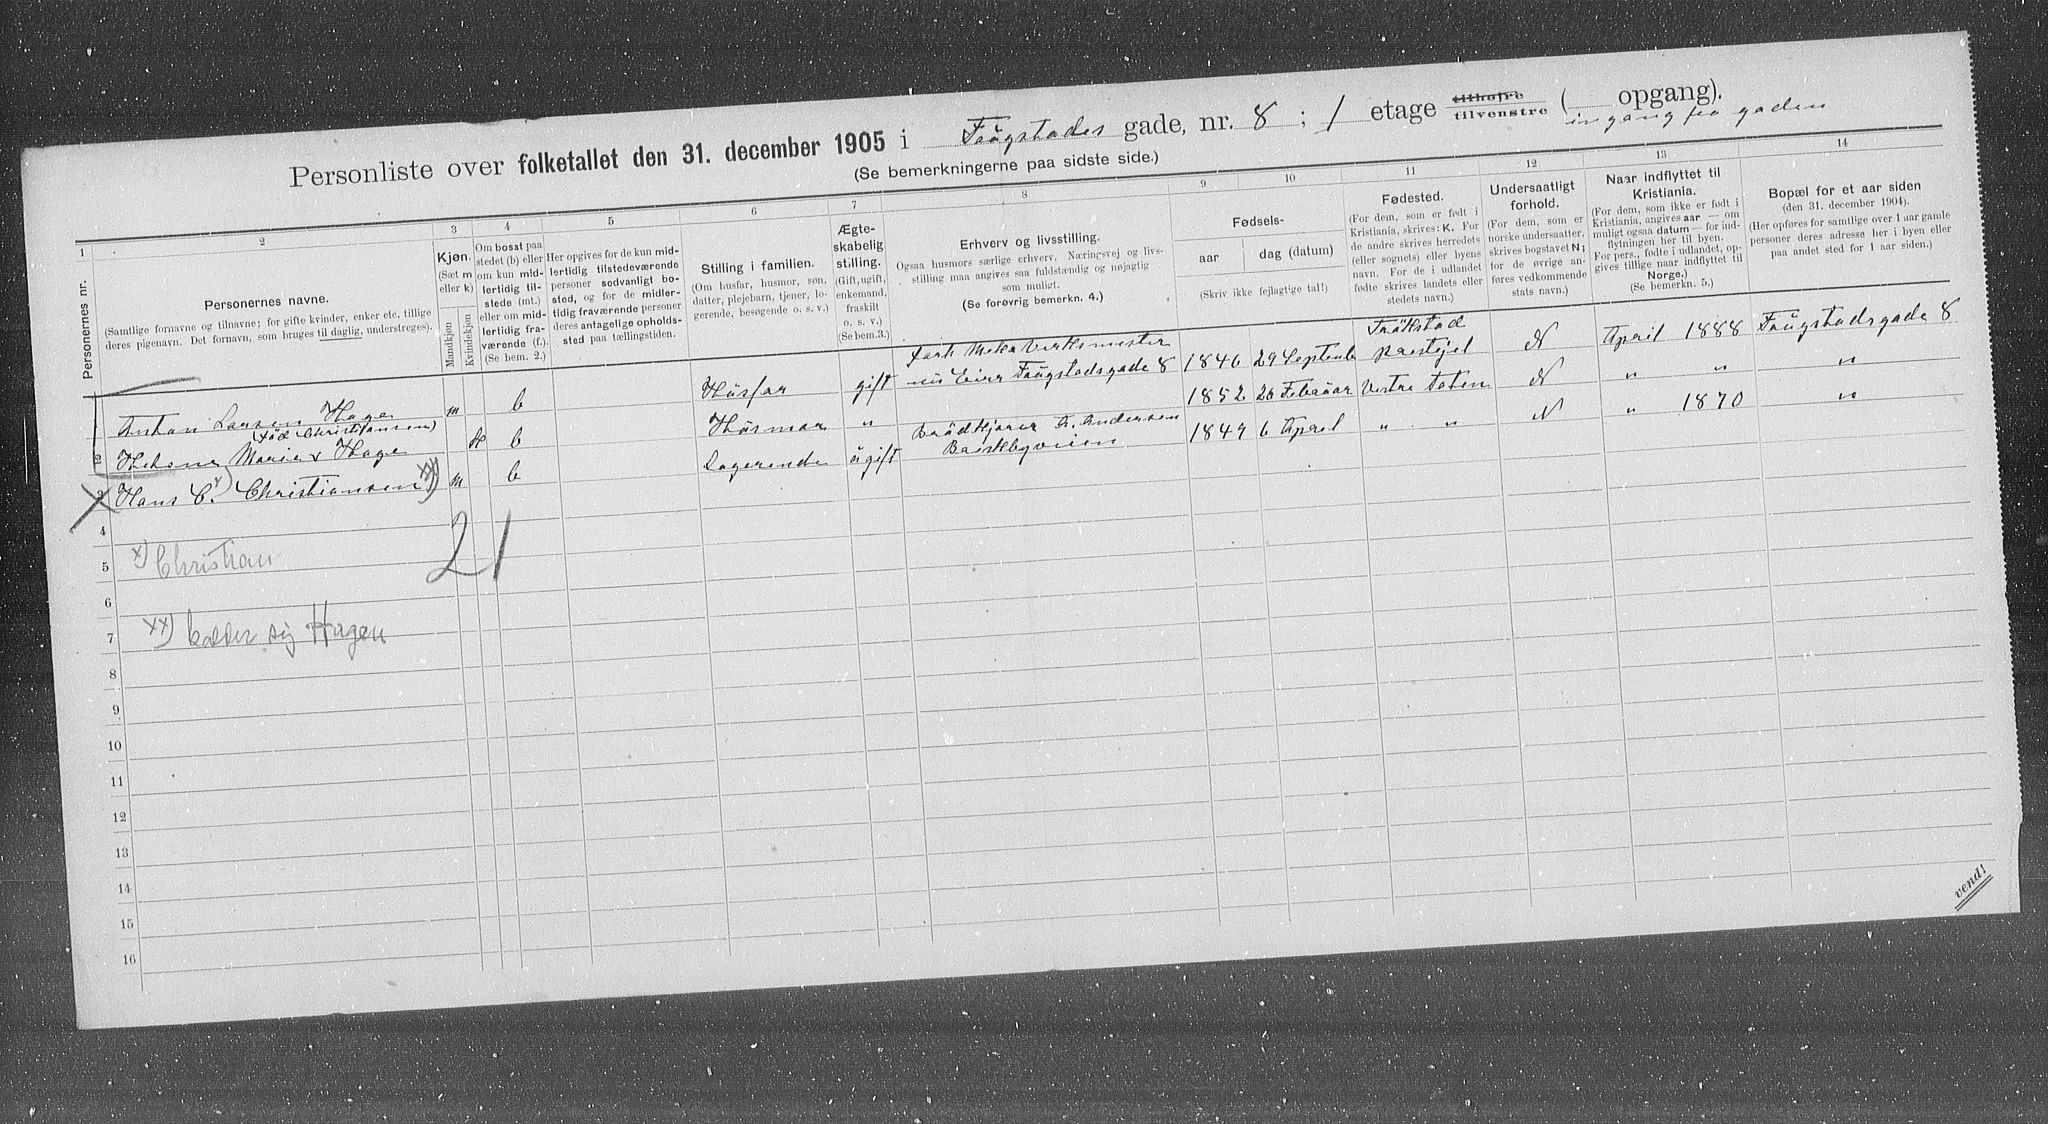 Personliste over folketallet den 31. december 1905 i Frögstades gade, nr. 8 ; 1 etage tilhøjre tilvenstre ( opgang).
ingang fra gaden
(Se bemerkningerne paa sidste side.)
1 2 3 4 5 6 7 8 9 10 11 12 13 14
Personernes nr.
Personernes navne.
(Samtlige fornavne og tilnavne; for gifte kvinder, enker etc. tillige
deres pigenavn. Det fornavn, som bruges til daglig, understreges).
Kjøn.
(Sæt m
eller k)
Mandkjøn
Kvindekjøn
Om bosat paa
stedet (b) eller
om kun mid-
lertidig til-
stede (mt.)
eller om mid-
lertidig fra-
værende (f.).
(Se bem. 2.)
Her opgives for de kun mid-
lertidig tilstedeværende
personer sedvanligt bo-
sted, og for de midler-
tidig fraværende personer
deres antagelige opholds-
sted paa tællingstiden.
Stilling i familien.
(Om husfar, husmor, søn,
datter, plejebarn, tjener, lo-
gerende, besøgende o. s. v.)
Ægte-
skabelig
stilling.
(Gift, ugift,
enkemand,
fraskilt
o. s. v.)
(Se bem. 3.)
Erhverv og livsstilling.
Ogsaa husmors særlige erhverv. Næringsvej og livs-
stilling maa angives saa fuldstændig og nøjagtig
som muligt.
(Se forøvrig bemerkn. 4.)
Fødsels-
aar
dag (datum)
(Skriv ikke fejlagtige tal!)
Fødested.
(For dem, som er født i
Kristiania, skrives: K. For
de andre skrives herredets
(eller sognets) eller byens
navn. For de i udlandet
fødte skrives landets eller
stedets navn.)
Undersaatligt
forhold.
(For dem, som er
norske undersaatter,
skrives bogstavet N;
for de øvrige an-
føres vedkommende
stats navn.)
Naar indflyttet til
Kristiania.
(For dem, som ikke er født i
Kristiania, angives aar — om
muligt ogsaa datum — for ind-
flytningen her til byen.
For pers., fødte i udlandet, op-
gives tillige naar indflyttet til
Norge.)
(Se bemerkn. 5.)
Bopæl for et aar siden
(den 31. december 1904).
(Her opføres for samtlige over 1 aar gamle
personer deres adresse her i byen eller
paa andet sted for 1 aar siden.)
Anton Larsen Hage m b Husfar gift Verksmester Frögstadsgade 8 1846 29 Septembe Tröktstad Prestejel N April 1888 Frögstadsgade 8
(född Christiansen)
2 Marie x Hage K b Husmor " 1852 26 Februar Vestre Toten N " " "
3 Hans C. x) Christiansen xx) m b Logerende ugift Brödkjörer A. Andersen 1849 6 April " " N " 1870 "
21
4
5 x) Christian
6
7 xx) kalder sig Hagen
8
9
10
11
12
13
14
15
16
vend!